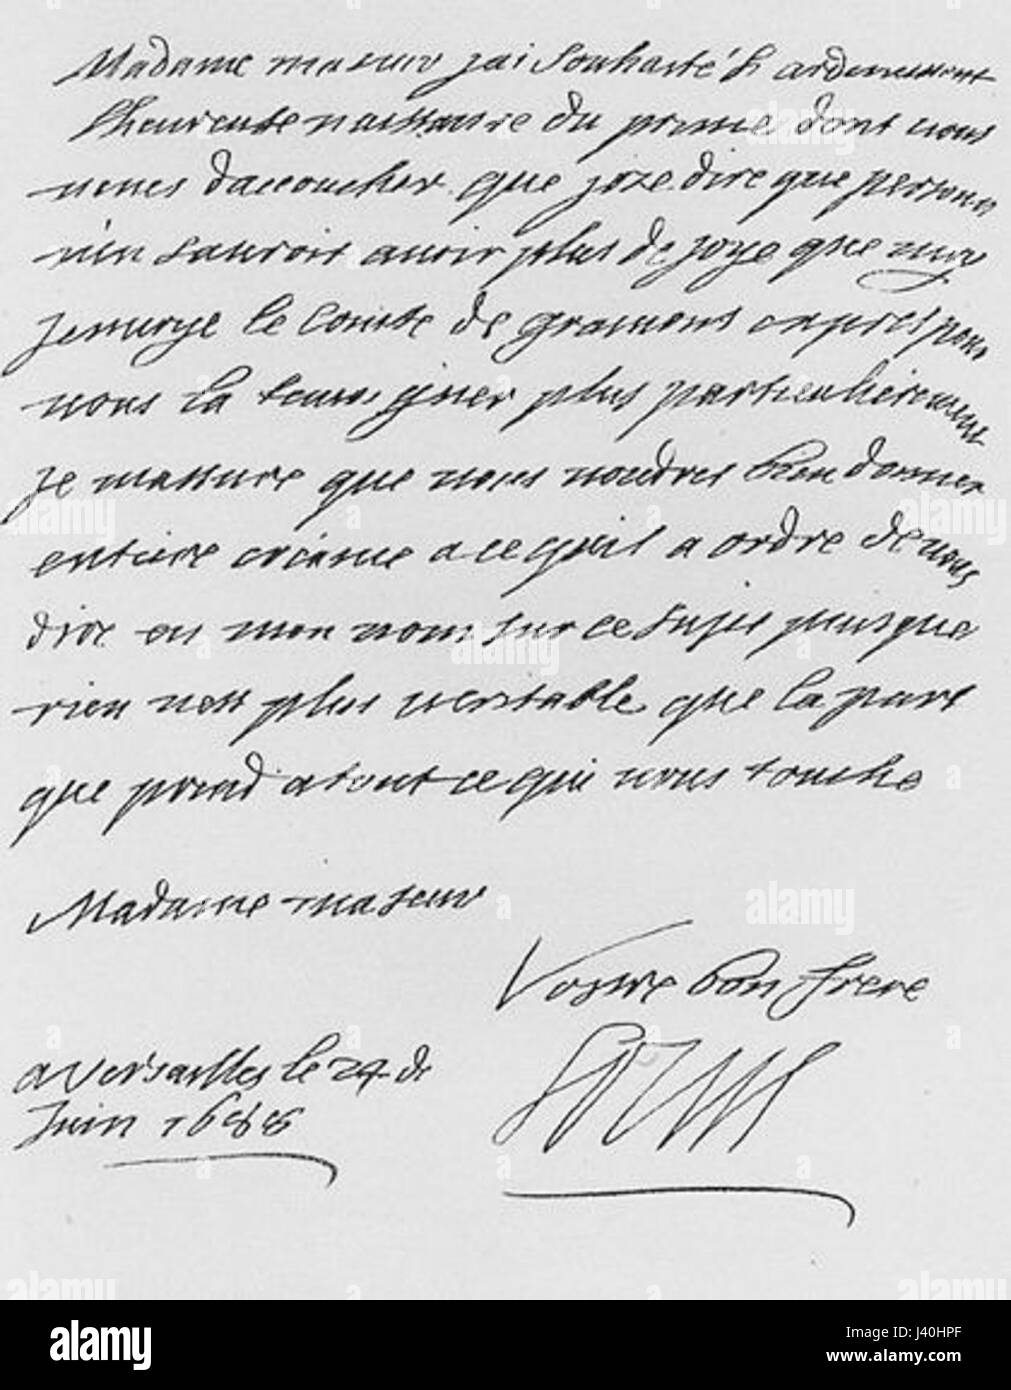 Madame ma seur jai souhaité si ardemment
lheureuse naissance du prince dont vous
venes daccoucher que joze dire que personne
nen sauroit avoir plus de joye que moy
jenvoye le Comte de gramont expres pour
vous la temoigner plus particulierement
je massure que vous voudres bien donner
entiere creance a ce quil a ordre de vous
dire en mon nom sur ce sujet puisque
rien nest plus veritable que la part
que prend a tout ce qui vous touche
Madame ma seur
Vostre bon frere
a Versailles le 24 de
Juin 1688
Louis
alamy stock photo
J40HPF
www.alamy.com